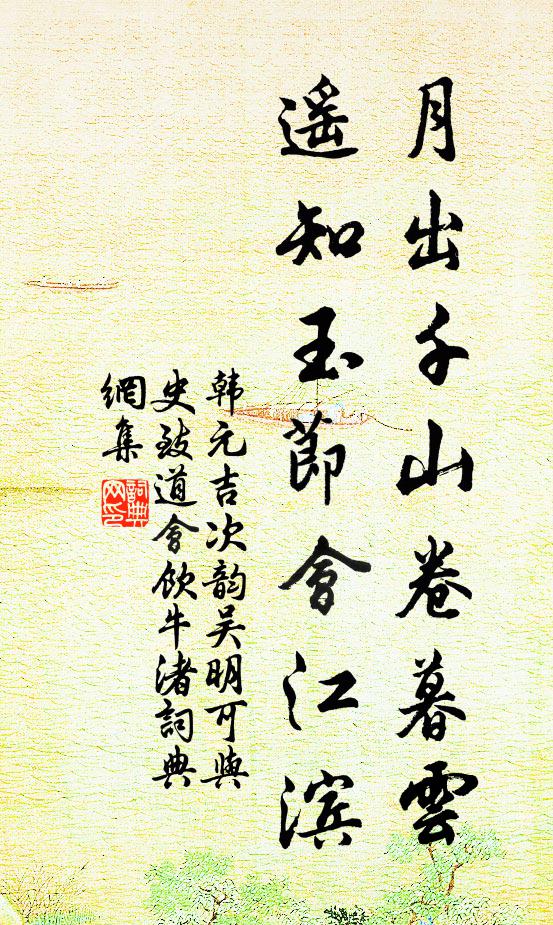 月出千山卷暮雲
遥知玉節會江濱
韩元吉次韵吴明可與
史致道會飲牛渚詞典
網集
詞典网印